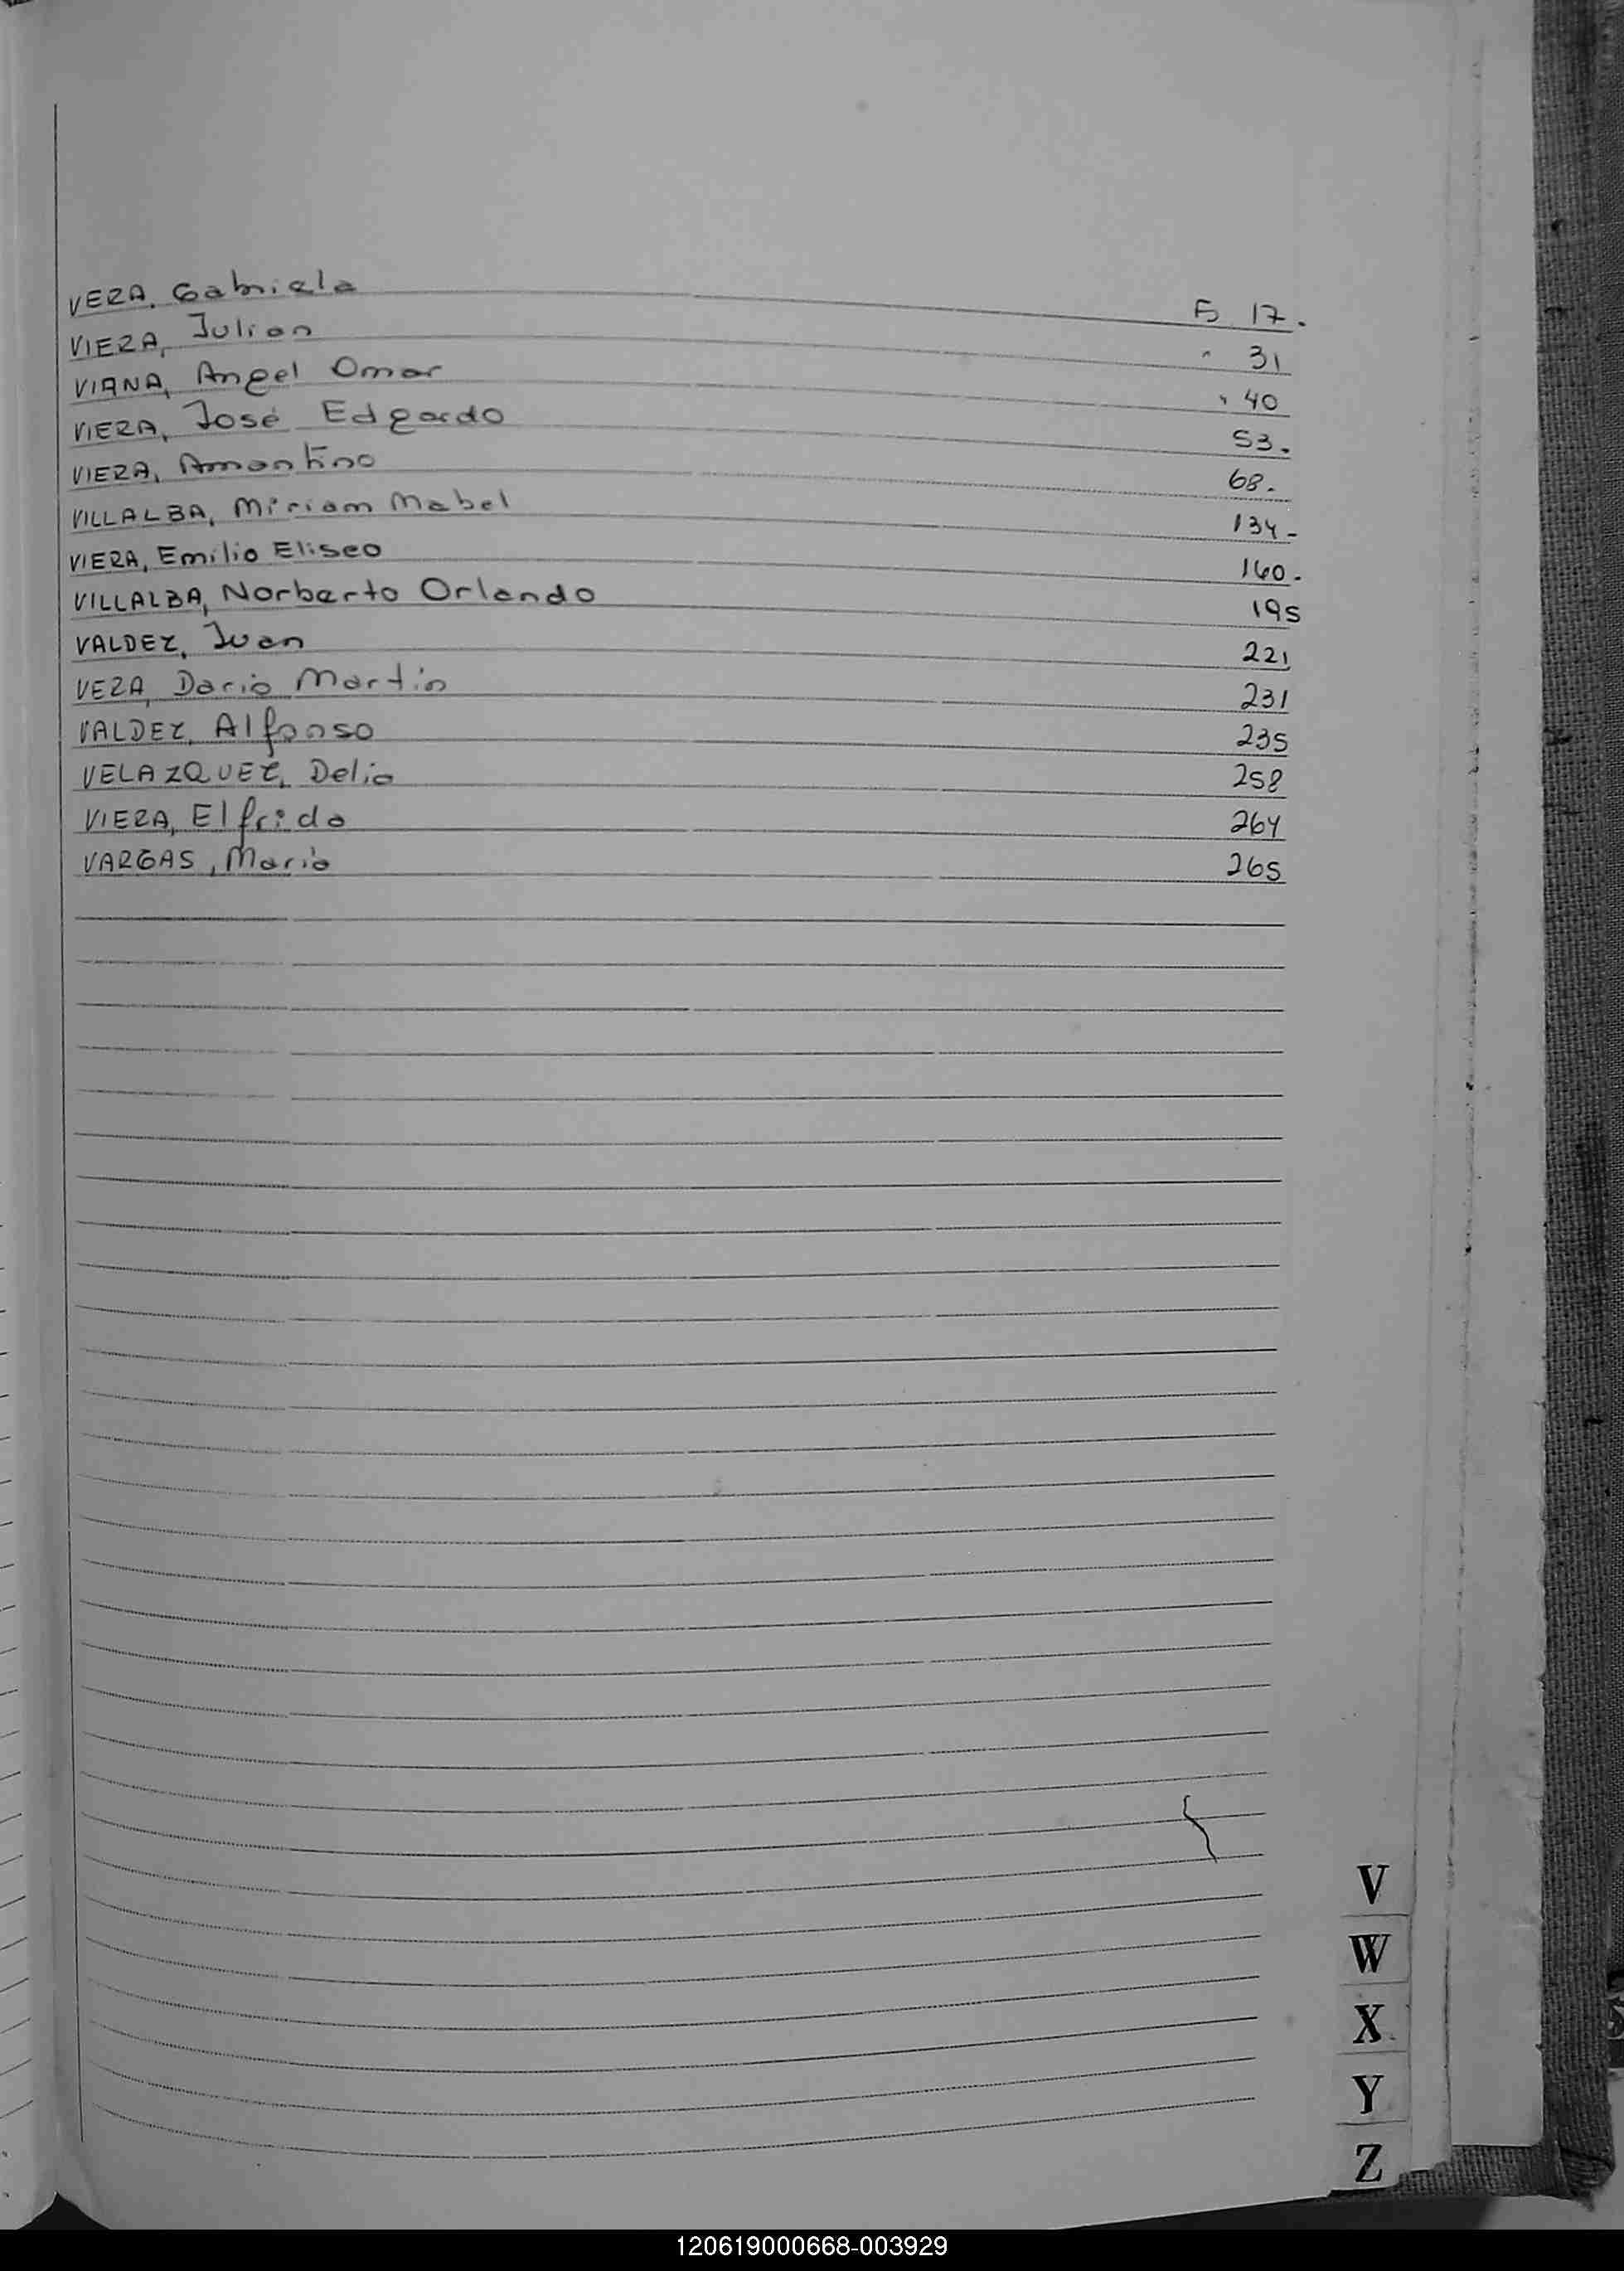 VERA, Gabriela F 17.
VIERA, Julian " 31
VIANA, Angel Omar " 40
VIERA, José Edgardo 53.
VIERA, Amantino 68.
VILLALBA, Miriam Mabel 134-
VIERA, Emilio Eliseo 160.
VILLALBA, Norberto Orlando 195
VALDEZ, Juan 221
VERA, Dario Martin 231
VALDEZ, Alfonso 235
VELAZQUEZ, Delia 258
VIERA, Elfrida 264
VARGAS, Maria 265
V
W
X
Y
Z
120619000668-003929